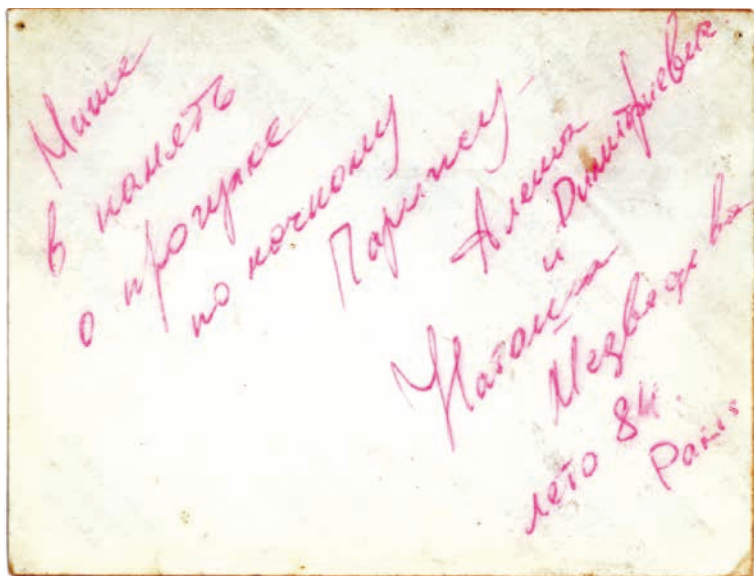 Мише
в память
о прогулке
по ночному
Парижу -
Алеша
и Димитриевич
Наташа
Медведева
лето 84.
Paris